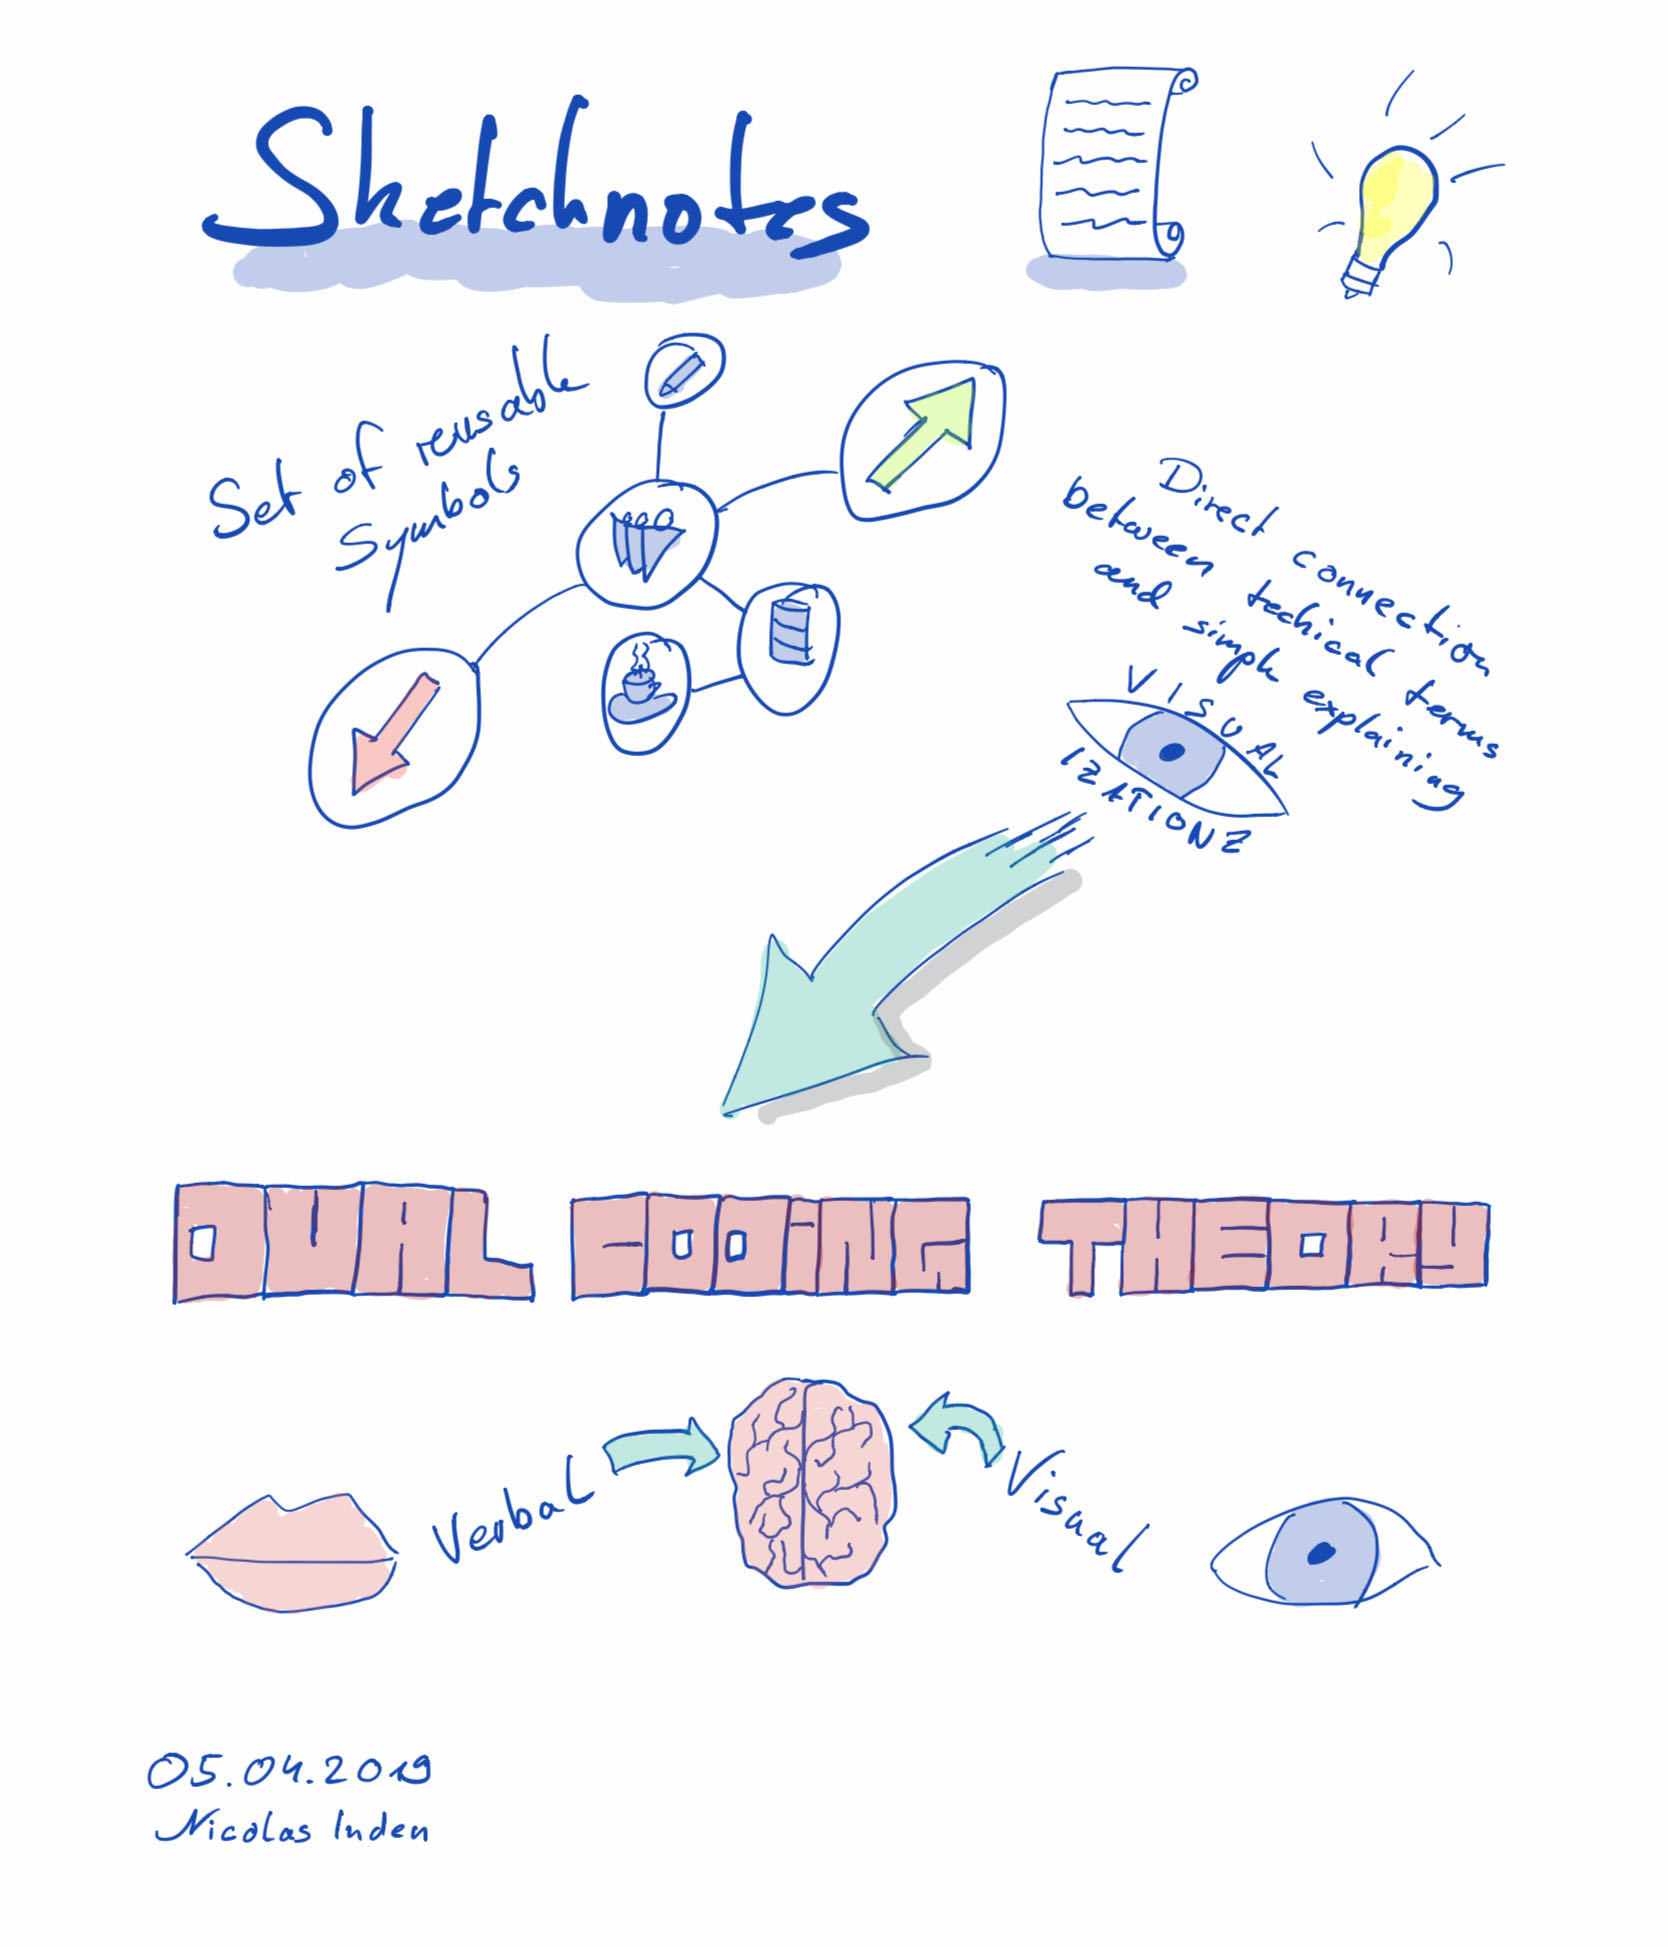 Sketchnotes
Set of reusable
Symbols
Direct connection
between techical terms
and simple explaining
VISUAL
IZATIONZ
DUAL CODING THEORY
Verbal
Visual
05.04.2019
Nicolas Inden